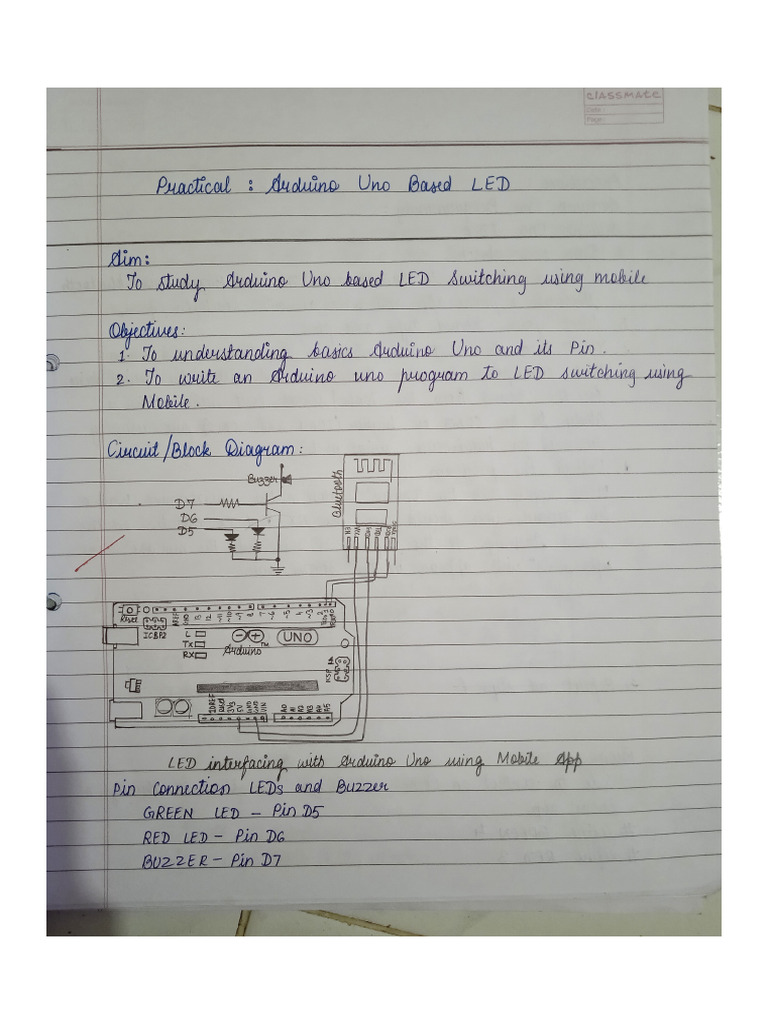 classmate
Date :
Page :
Practical : Arduino Uno Based LED
Aim:
To study Arduino Uno based LED switching using mobile
Objectives:
1. To understanding basics Arduino Uno and its Pin.
2. To write an Arduino uno program to LED switching using
Mobile.
Circuit/Block Diagram:
Buzzer
D7
D6
D5
Bluetooth
EN
VCC
GND
TXD
RXD
State
Reset
ICSP2
AREF
GND
13
12
~11
~10
~9
8
7
~6
~5
4
~3
2
L
TX
RX
UNO
Arduino
TM
IOREF
Reset
3V3
5V
GND
GND
VIN
A0
A1
A2
A3
A4
A5
LED interfacing with Arduino Uno using Mobile App
Pin Connection LEDs and Buzzer
GREEN LED – Pin D5
RED LED – Pin D6
BUZZER – Pin D7